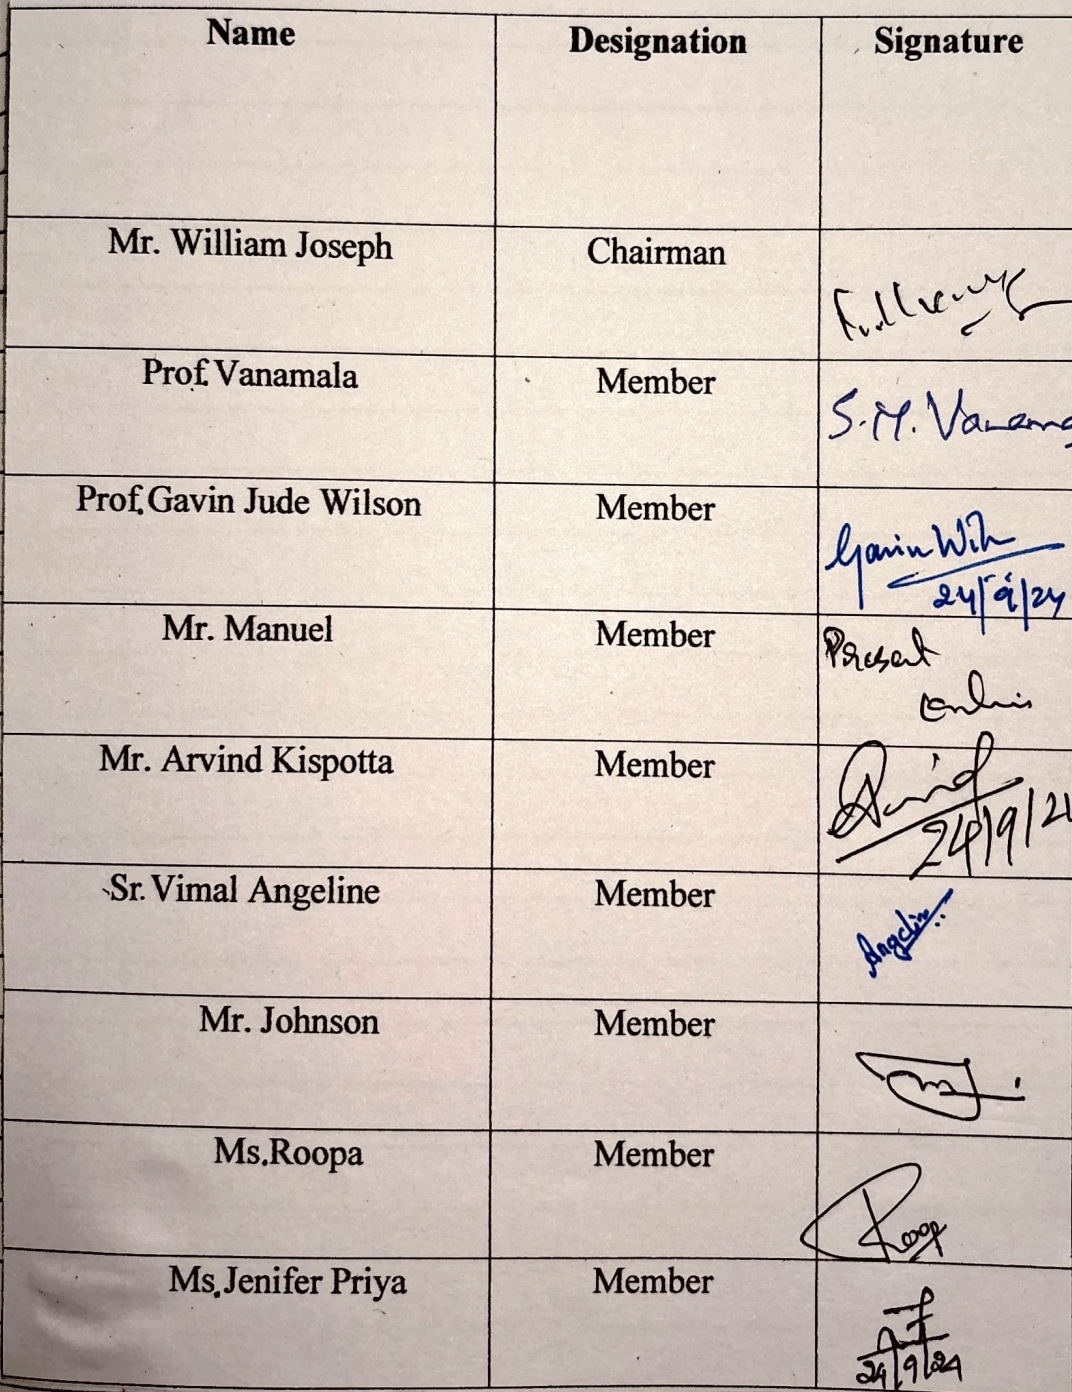 Name Designation Signature
Mr. William Joseph Chairman
Prof. Vanamala Member
S.M. Vanama
Prof. Gavin Jude Wilson Member
Gavin Wil
24/9/24
Mr. Manuel Member
Present
Mr. Arvind Kispotta Member
Arvind
24/9/2
Sr. Vimal Angeline Member
Angelin
Mr. Johnson Member
Ms.Roopa Member
Roop
Ms.Jenifer Priya Member
24/9/24